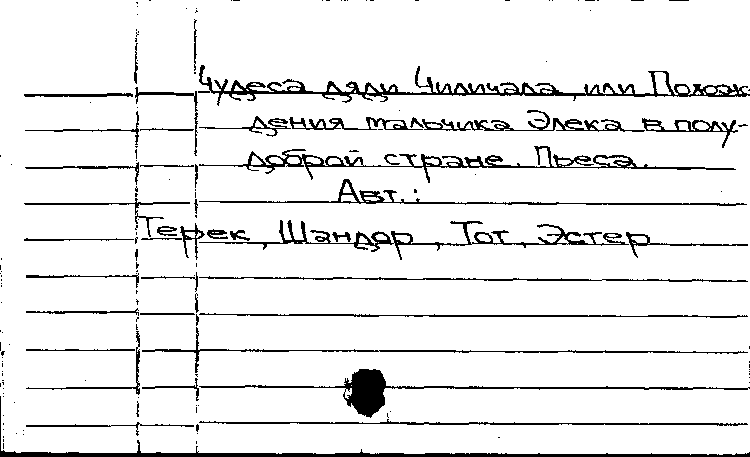 Чудеса дяди Чиличала, или Похож-
дения мальчика Элека в полу-
доброй стране. Пьеса.
Авт.:
Терек, Шандор, Тот, Эстер